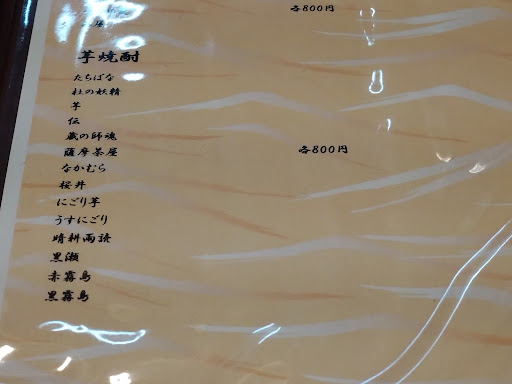 各800円
芋焼酎
たちばな
杜の妖精
芋
伝
蔵の師魂
薩摩茶屋
各800円
なかむら
桜井
にごり芋
うすにごり
晴耕雨読
黒瀬
赤霧島
黒霧島